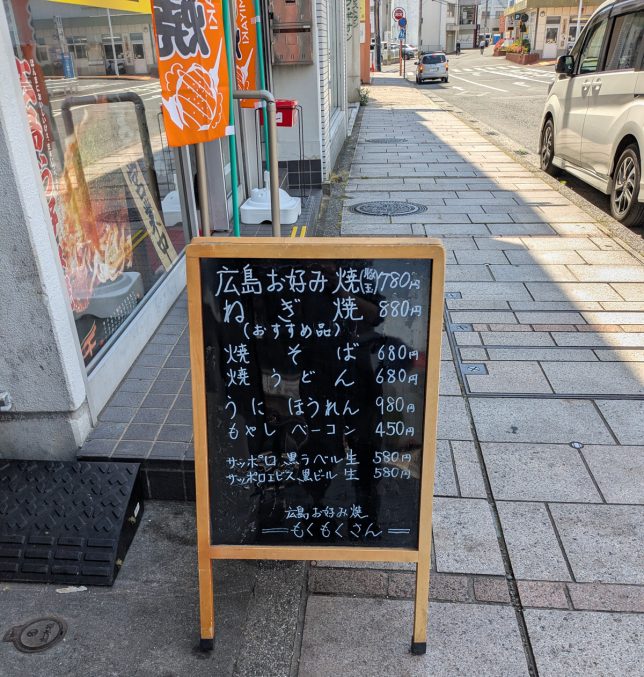 広島お好み焼(豚玉)780円
ねぎ焼 880円
(おすすめ品)
焼そば 680円
焼うどん 680円
うにほうれん 980円
もやしベーコン 450円
サッポロ黒ラベル生 580円
サッポロエビス黒ビール生 580円
広島お好み焼
もくもくさん
焼